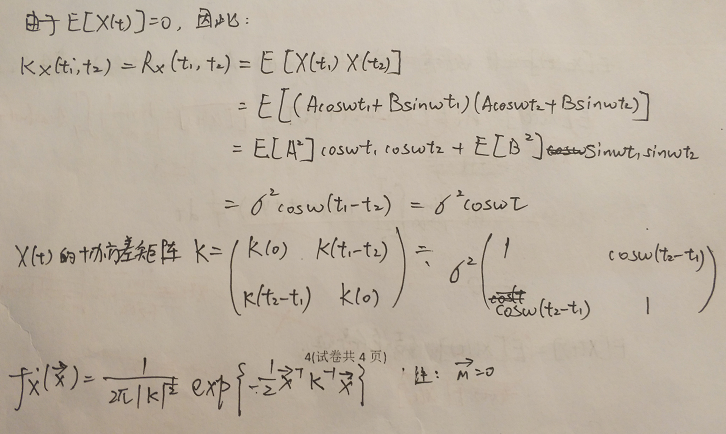 由于E[X(t)]=0, 因此:
Kx(t₁,t₂) = Rx(t₁,t₂) = E[X(t₁)X(t₂)]
= E[(Acoswt₁+Bsinwt₁)(Acoswt₂+Bsinwt₂)]
= E[A²]coswt₁coswt₂ + E[B²]sinwt₁sinwt₂
= σ²cosw(t₁-t₂) = σ²coswτ
X(t)的协方差矩阵 K = (K(0) K(t₁-t₂) = σ²(1 cosw(t₂-t₁)
K(t₂-t₁) K(0)) cosw(t₂-t₁) 1)
4(试卷共4页)
fx(x⃗) = 1/(2π|K|^½) exp{-½x⃗ᵀK⁻¹x⃗} 注: m⃗=0